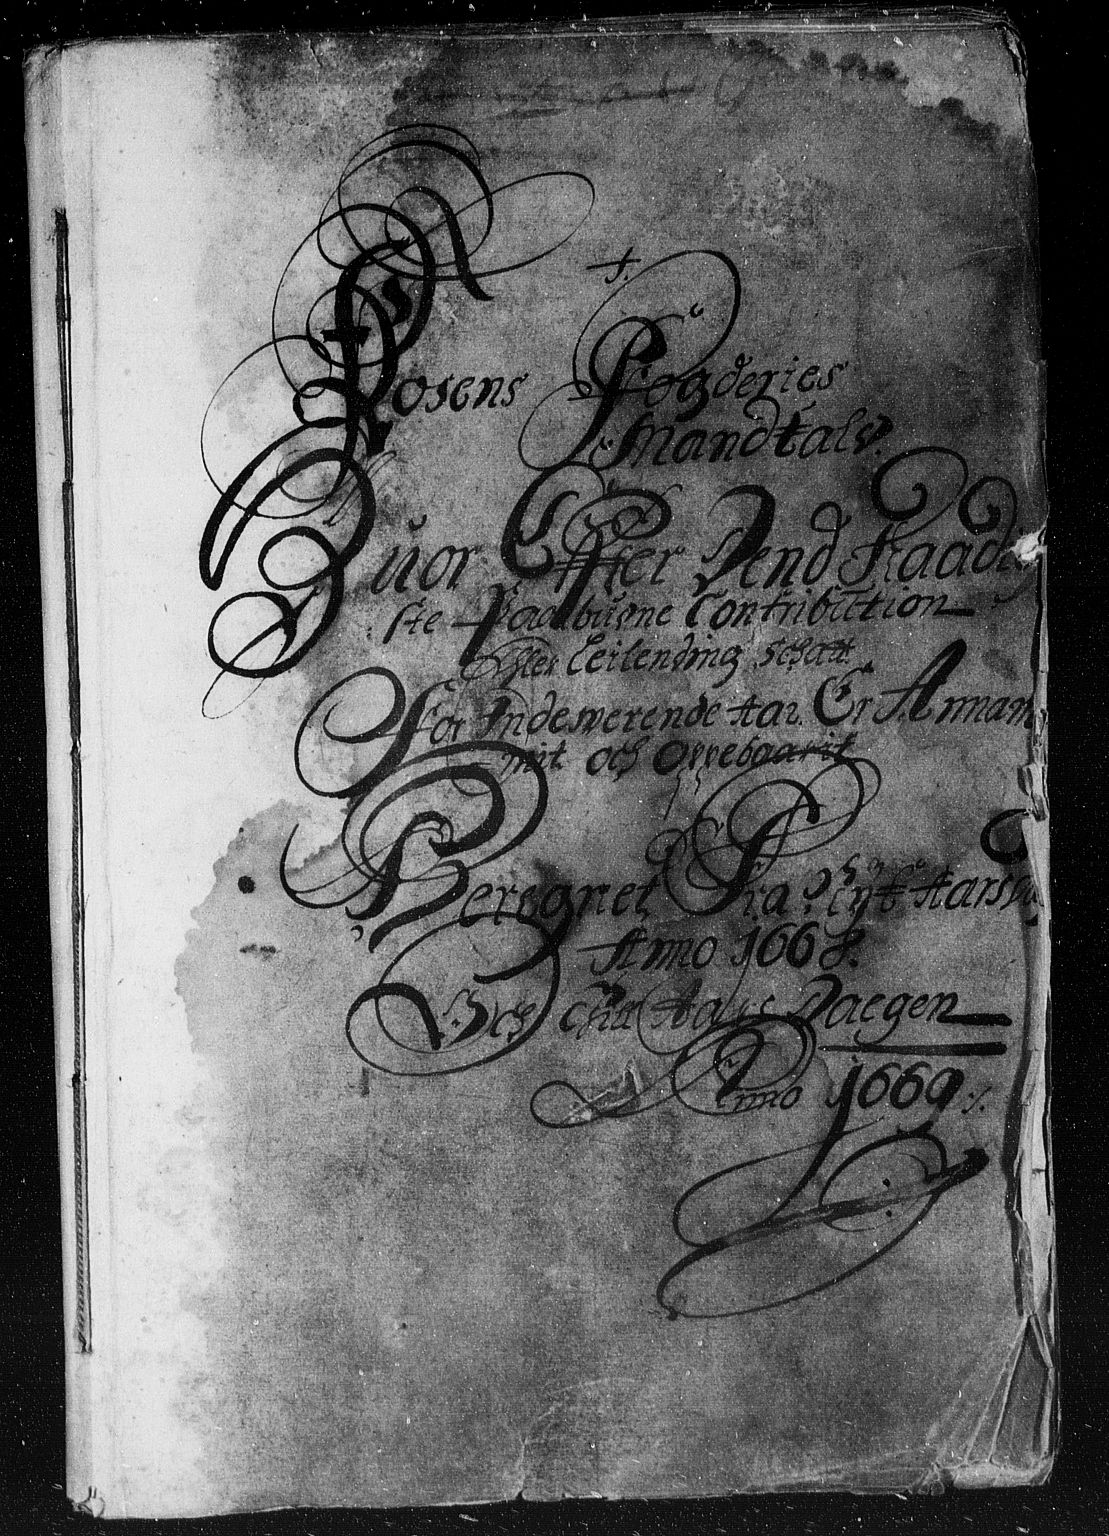 Fosens Fogderies
Mandtals
Huor Effter Dend Naadig
ste Paabudne Contribution
Eller Leilending Schatt
For Indewerende Aar Er Annam
mit och Oppebaarit
Beregnet Fra Nyt Aarsdag
Anno 1668.
Och till Aars Daegen
Anno 1669